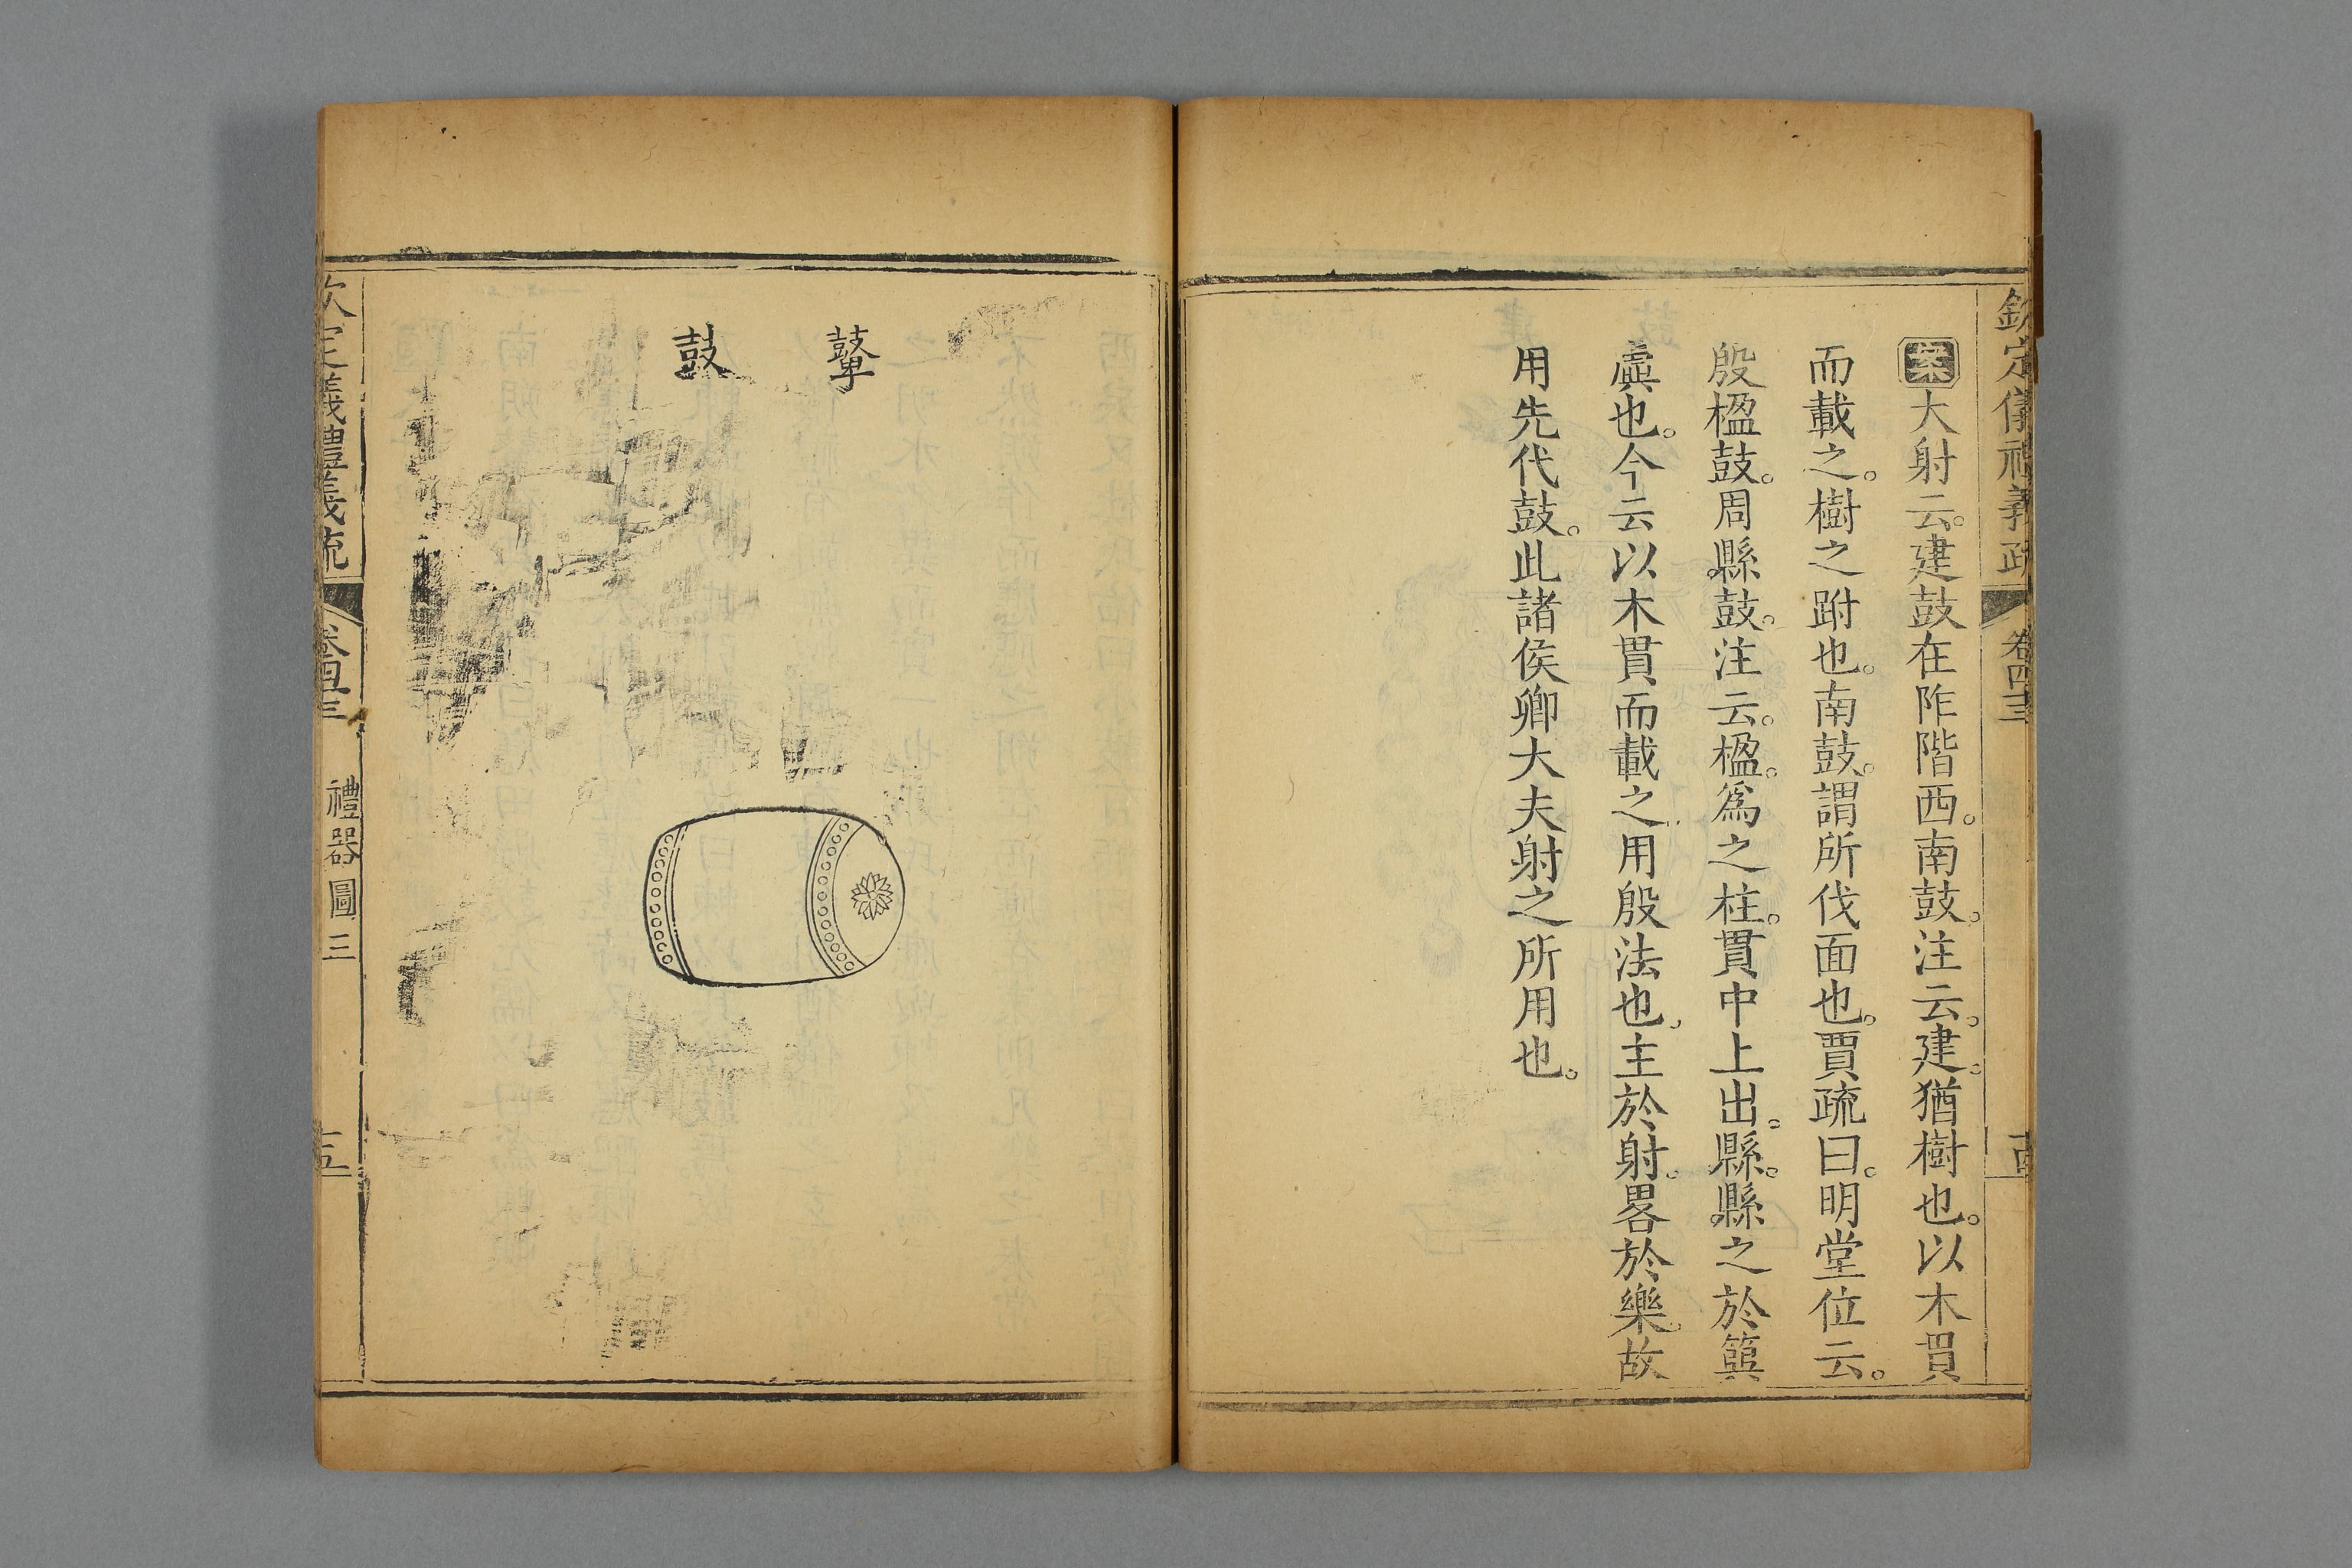 欽定儀禮義疏 卷四十三
案大射云。建鼓在阼階西。南鼓。注云。建。猶樹也。以木貫
而載之。樹之跗也。南鼓。謂所伐面也。賈疏曰。明堂位云。
殷楹鼓。周縣鼓。注云。楹。爲之柱。貫中上出。縣。縣之於簨
虡也。今云以木貫而載之。用殷法也。主於射。畧於樂。故
用先代鼓。此諸侯卿大夫射之所用也。
鼙
鼓
欽定儀禮義疏 卷四十三 禮器圖三